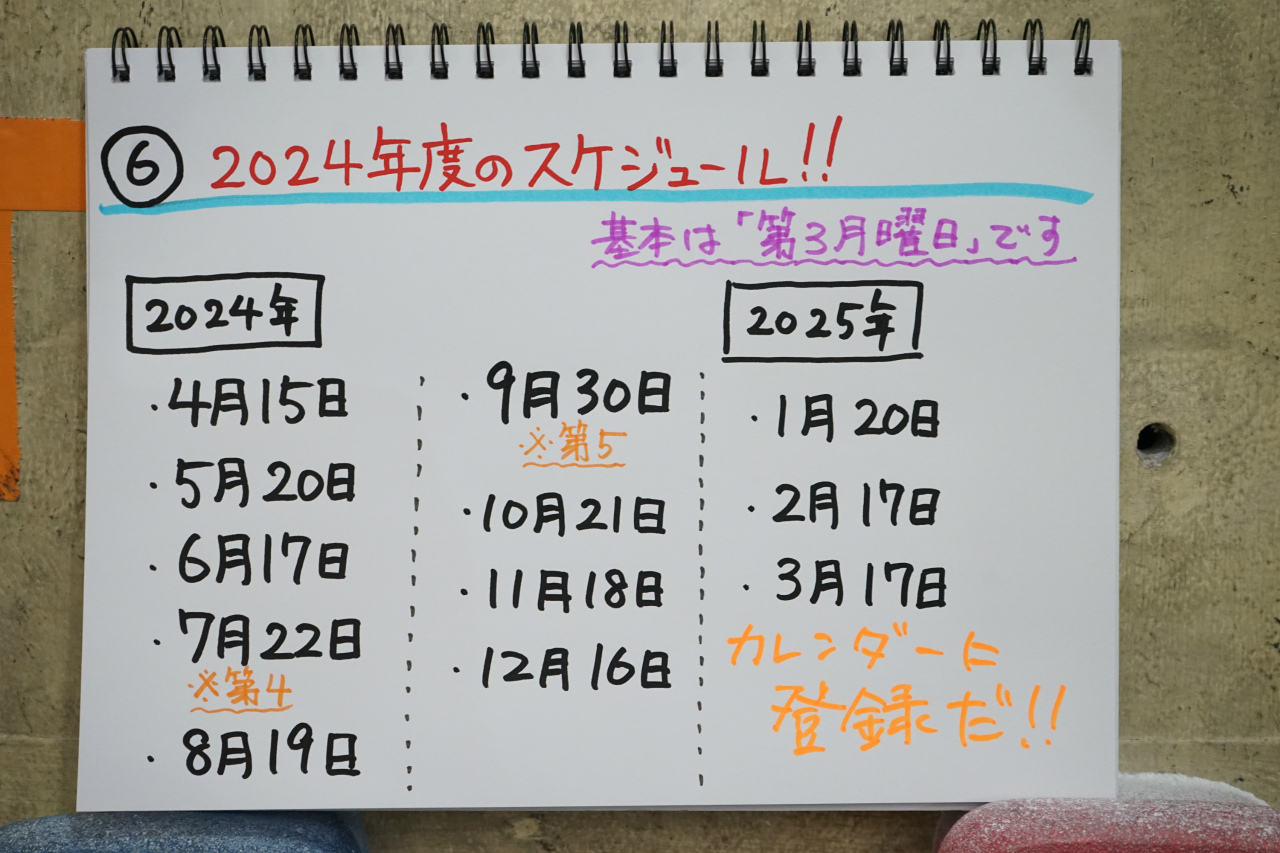 ⑥ 2024年度のスケジュール!!
基本は「第3月曜日」です
2024年
・4月15日
・5月20日
・6月17日
・7月22日
※第4
・8月19日
・9月30日
※第5
・10月21日
・11月18日
・12月16日
2025年
・1月20日
・2月17日
・3月17日
カレンダーに
登録だ!!